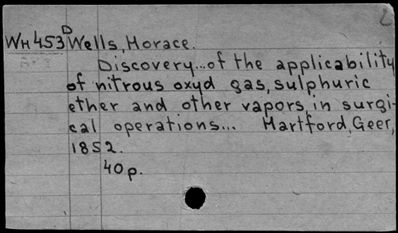 WH453 D Wells, Horace.
Discovery...of the applicability
of nitrous oxyd gas, sulphuric
ether and other vapors, in surgi-
cal operations... Hartford, Geer,
1852.
40p.